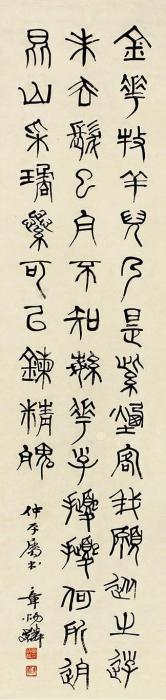 金華牧羊兒乃是紫煙客我願從之遊
未去髮已白不知繇華子擾擾何所迫
昆山采瓊蘂可㠯鍊精魄
仲 屬書 章炳麟